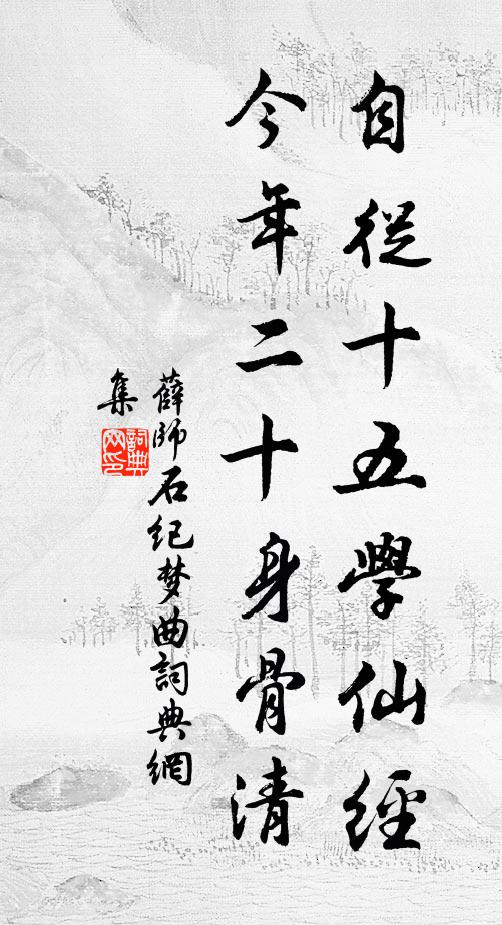 自從十五學仙經
今年二十身骨清
薛師石纪梦曲詞典網
集
詞典網印